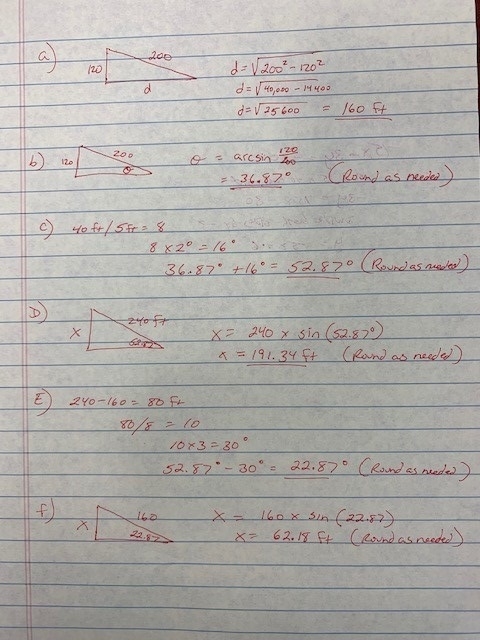 a) 120 200 d
d = √200² - 120²
d = √40,000 - 14400
d = √25600 = 160 ft
b) 120 200 θ
θ = arcsin 120/200
= 36.87° (Round as needed)
c) 40 ft / 5 ft = 8
8 x 2° = 16°
36.87° + 16° = 52.87° (Round as needed)
D) x 240 ft 52.87
x = 240 x sin (52.87°)
x = 191.34 ft (Round as needed)
E) 240 - 160 = 80 ft
80/8 = 10
10 x 3 = 30°
52.87° - 30° = 22.87° (Round as needed)
f) x 160 22.87
x = 160 x sin (22.87)
x = 62.18 ft (Round as needed)